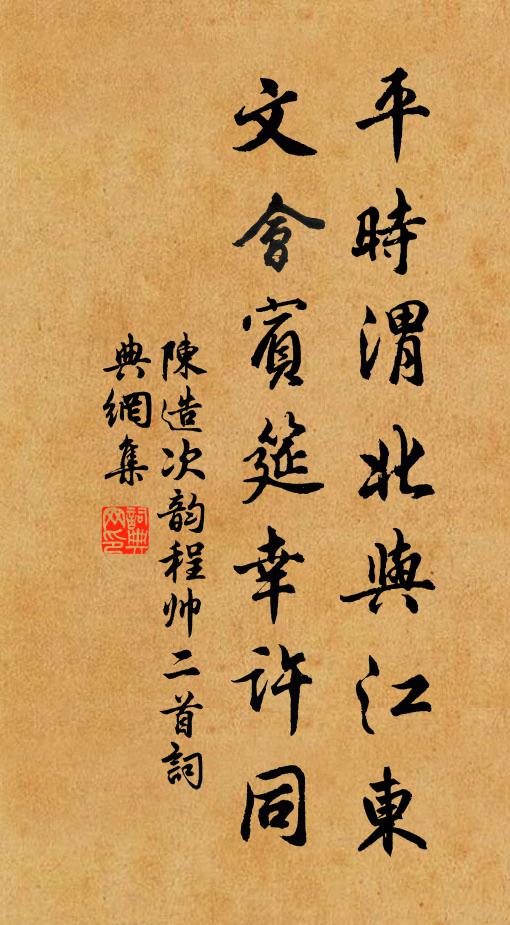 平時渭北與江東
文會賓筵幸許同
陳造次韵程帅二首詞
典網集
詞典網印